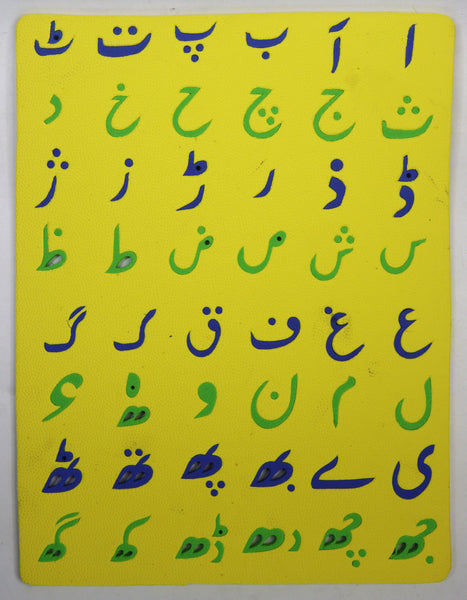 ا آ ب پ ت ٹ
ث ج چ ح خ د
ڈ ذ ر ڑ ز ژ
س ش ص ض ط ظ
ع غ ف ق ک گ
ل م ن و ہ ھ ء
ی ے بھ پھ تھ ٹھ
جھ چھ دھ ڈھ کھ گھ